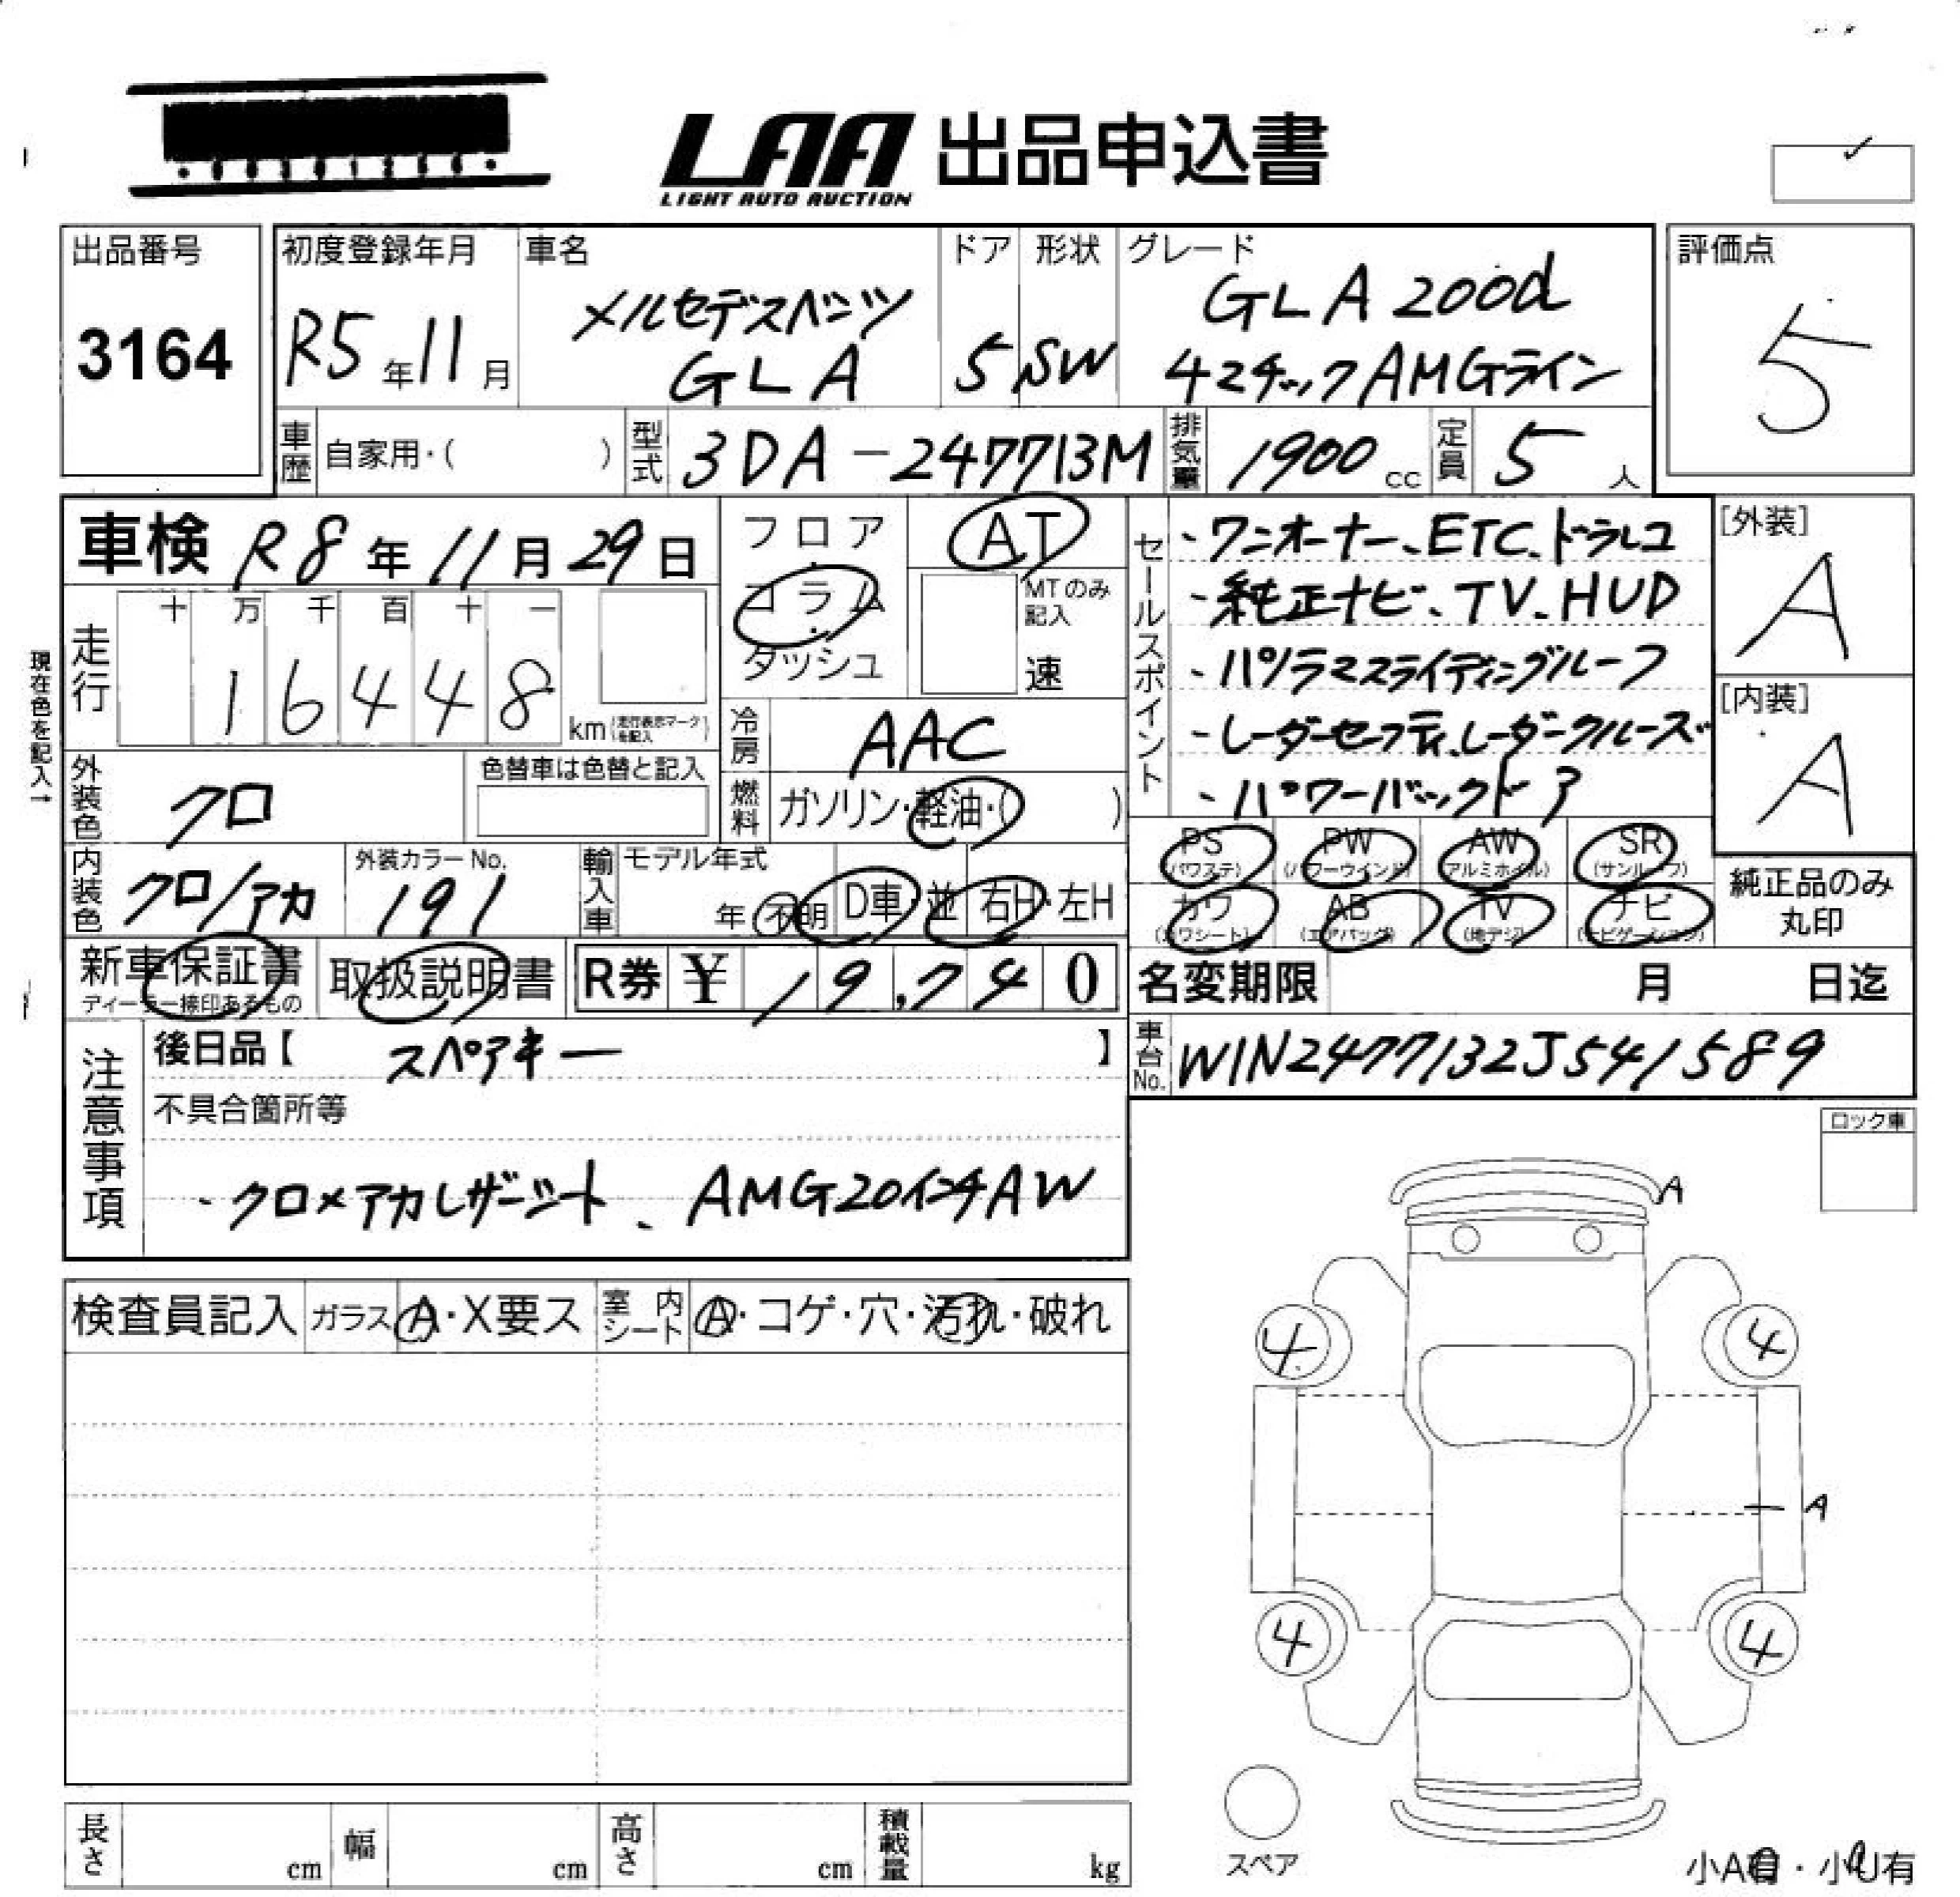 LAA 出品申込書
LIGHT AUTO AUCTION
出品番号
3164
初度登録年月
R5年11月
車名
メルセデスベンツ
GLA
ドア
5
形状
SW
グレード
GLA200d
4マチックAMGライン
評価点
5
車歴 自家用・( )
型式 3DA-247713M
排気量 1900cc
定員 5人
車検 R8年11月29日
走行 十 万 千 百 十 一
16448
km (走行表示マークを記入)
現在色を記入→
フロア・コラム・ダッシュ
AT
MTのみ記入
速
冷房 AAC
燃料 ガソリン・軽油・( )
外装色 クロ
色替車は色替と記入
内装色 クロ/アカ
外装カラーNo.
191
輸入車 モデル年式
年 不明 D車・並 右H・左H
セールスポイント
・ワンオーナー、ETC、ドラレコ
・純正ナビ、TV、HUD
・パノラマスライディングルーフ
・レーダーセフティ、レーダークルーズ
・パワーバックドア
[外装]
A
[内装]
A
PS (パワステ)
PW (パワーウインド)
AW (アルミホイル)
SR (サンルーフ)
カワ (カワシート)
AB (エアバッグ)
TV (地デジ)
ナビ (ナビゲーション)
純正品のみ
丸印
新車保証書
ディーラー捺印あるもの
取扱説明書
R券 ¥ 19,740
名変期限 月 日迄
車台No. W1N2477132J541589
注意事項
後日品【 スペアキー 】
不具合箇所等
・クロ×アカレザーシート、AMG20インチAW
ロック車
検査員記入 ガラス A・X要ス 室内シート A・コゲ・穴・汚れ・破れ
A
4 4
A
4 4
スペア
小A有・小U有
長さ cm 幅 cm 高さ cm 積載量 kg